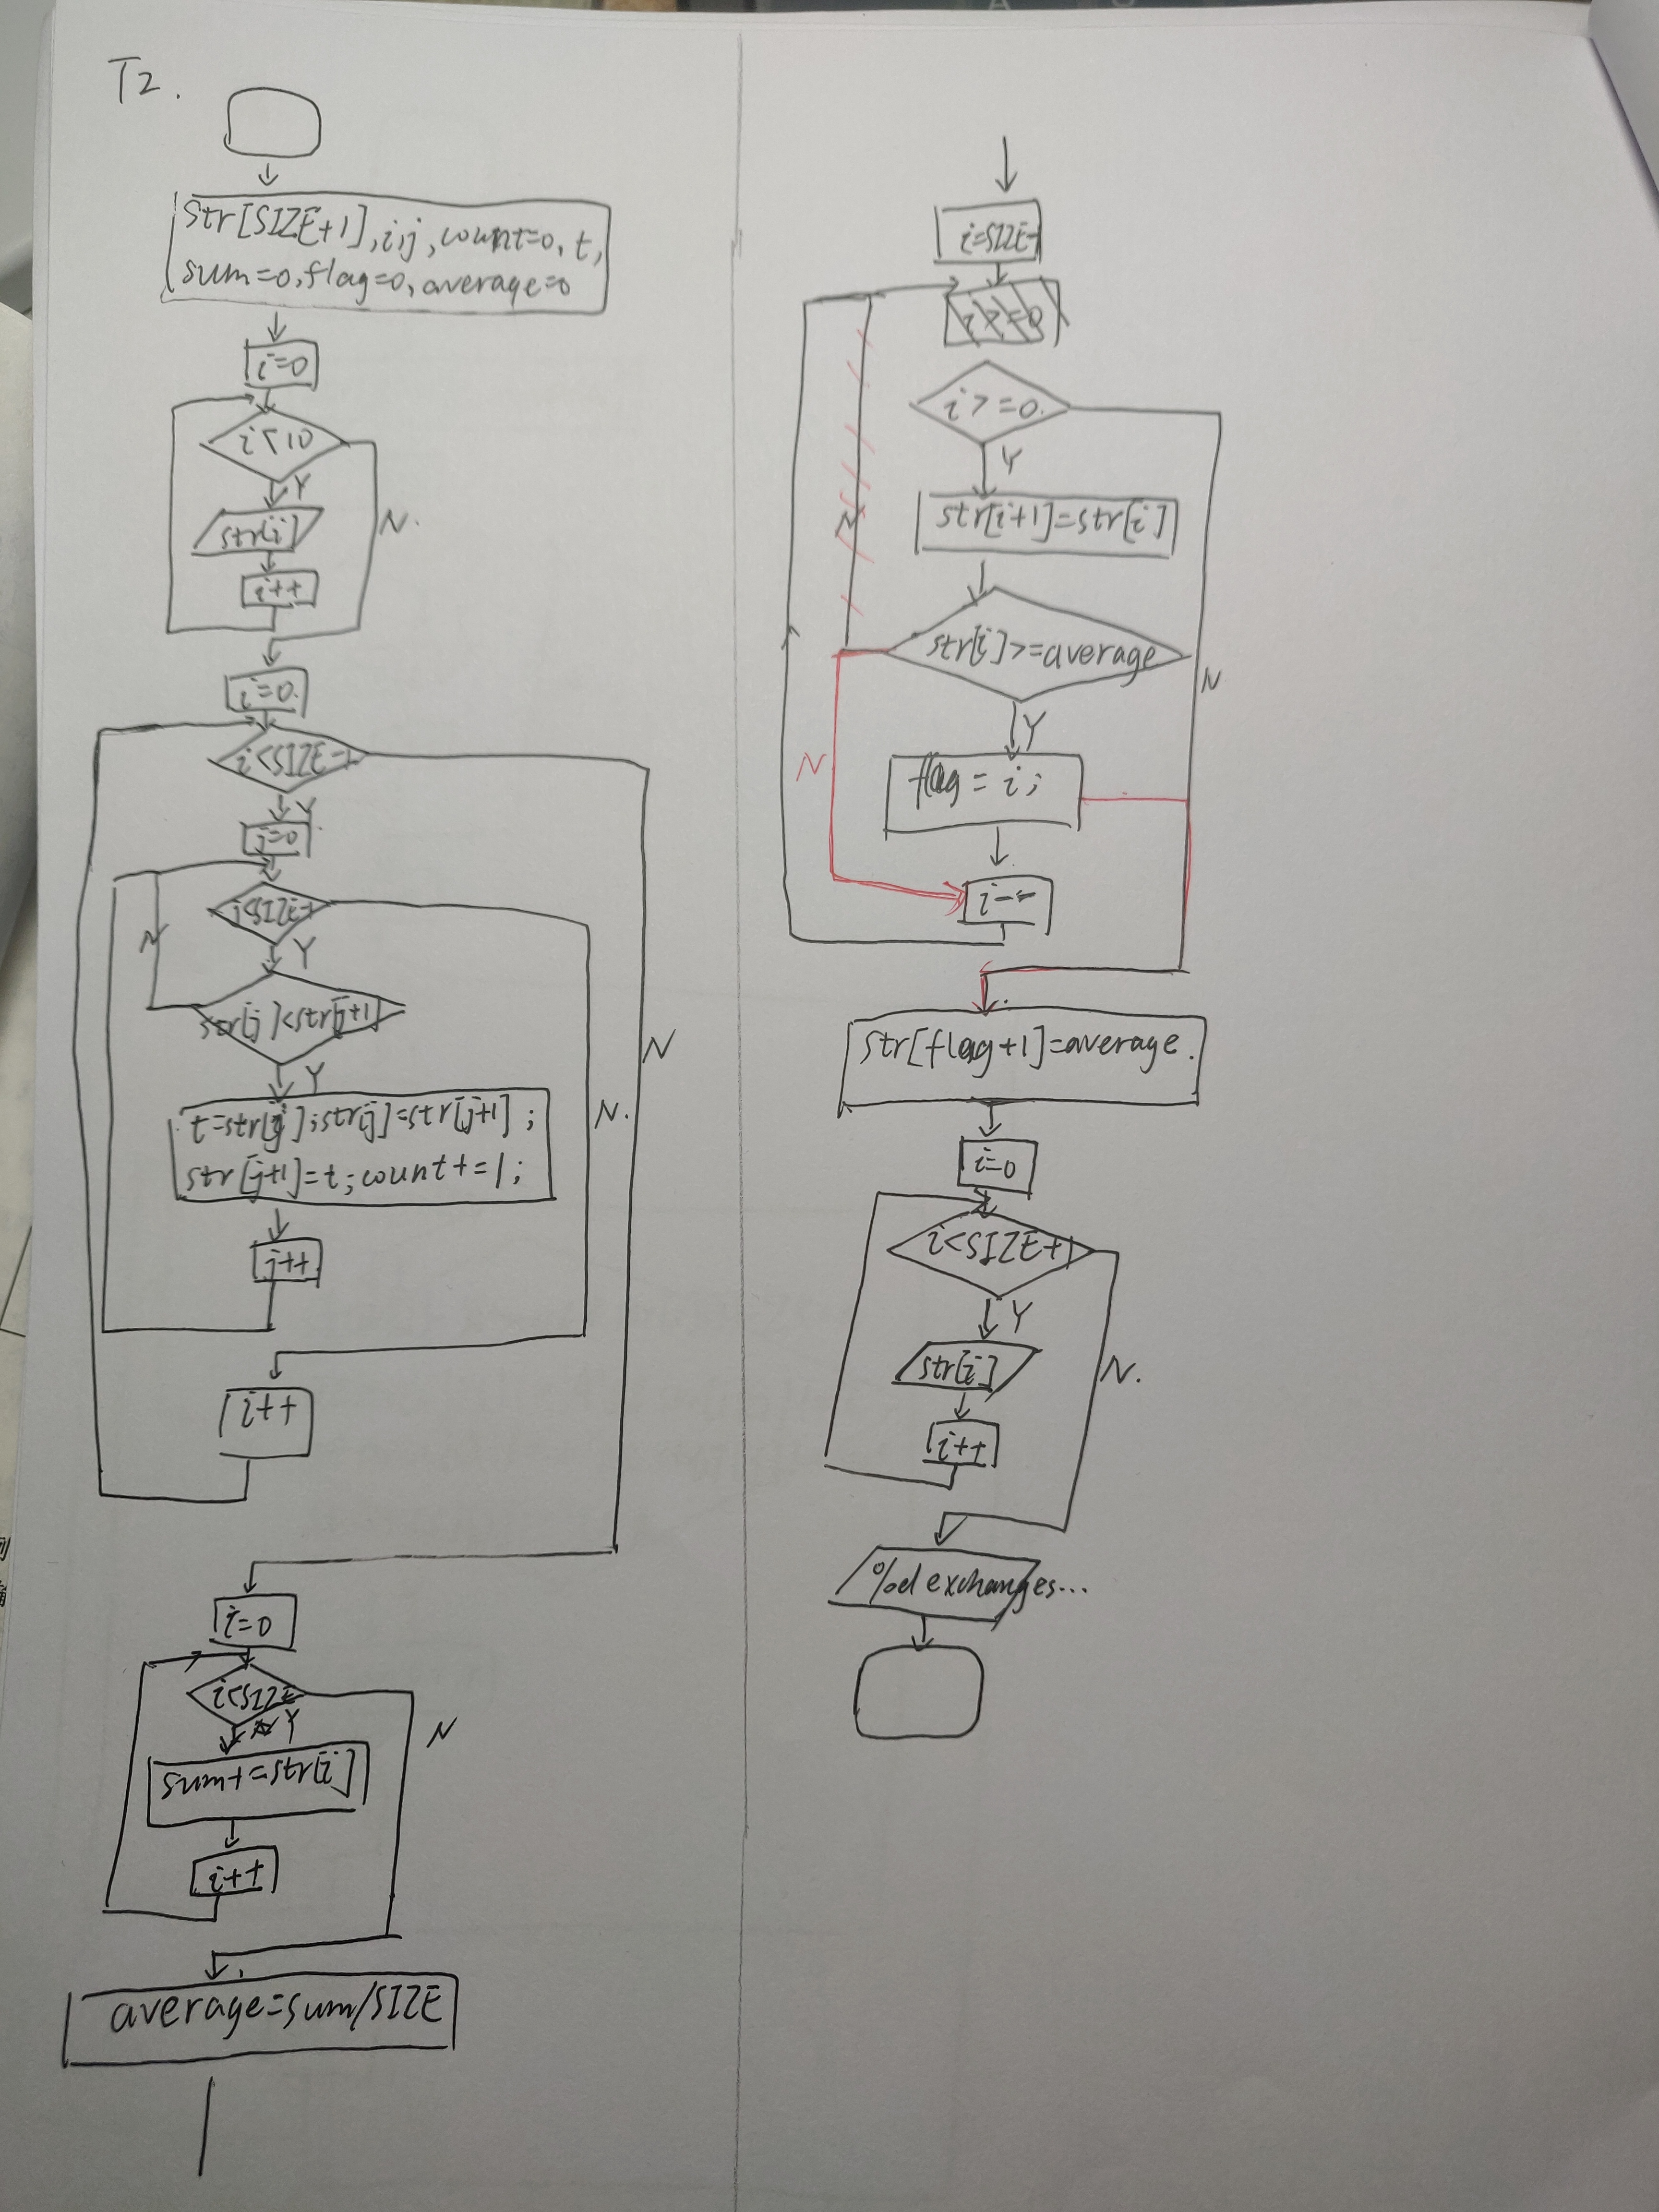 T2.
str[SIZE+1],i,j,count=0,t,
sum=0,flag=0,average=0
i=0
i<10
Y
str[i]
N.
i++
i=0.
i<SIZE-1
Y.
j=0
j<SIZE-1
N
Y
str[j]<str[j+1]
N
Y
t=str[j];str[j]=str[j+1];
N.
str[j+1]=t;count+=1;
j++
i++
i=0
i<SIZE
Y
N
sum+=str[i]
i++
average=sum/SIZE
i=SIZE-1
i>=0
i>=0.
Y
str[i+1]=str[i]
N
str[i]>=average
N
Y
N
flag=i;
i--
str[flag+1]=average.
i=0
i<SIZE+1
Y
str[i]
N.
i++
%d exchanges...